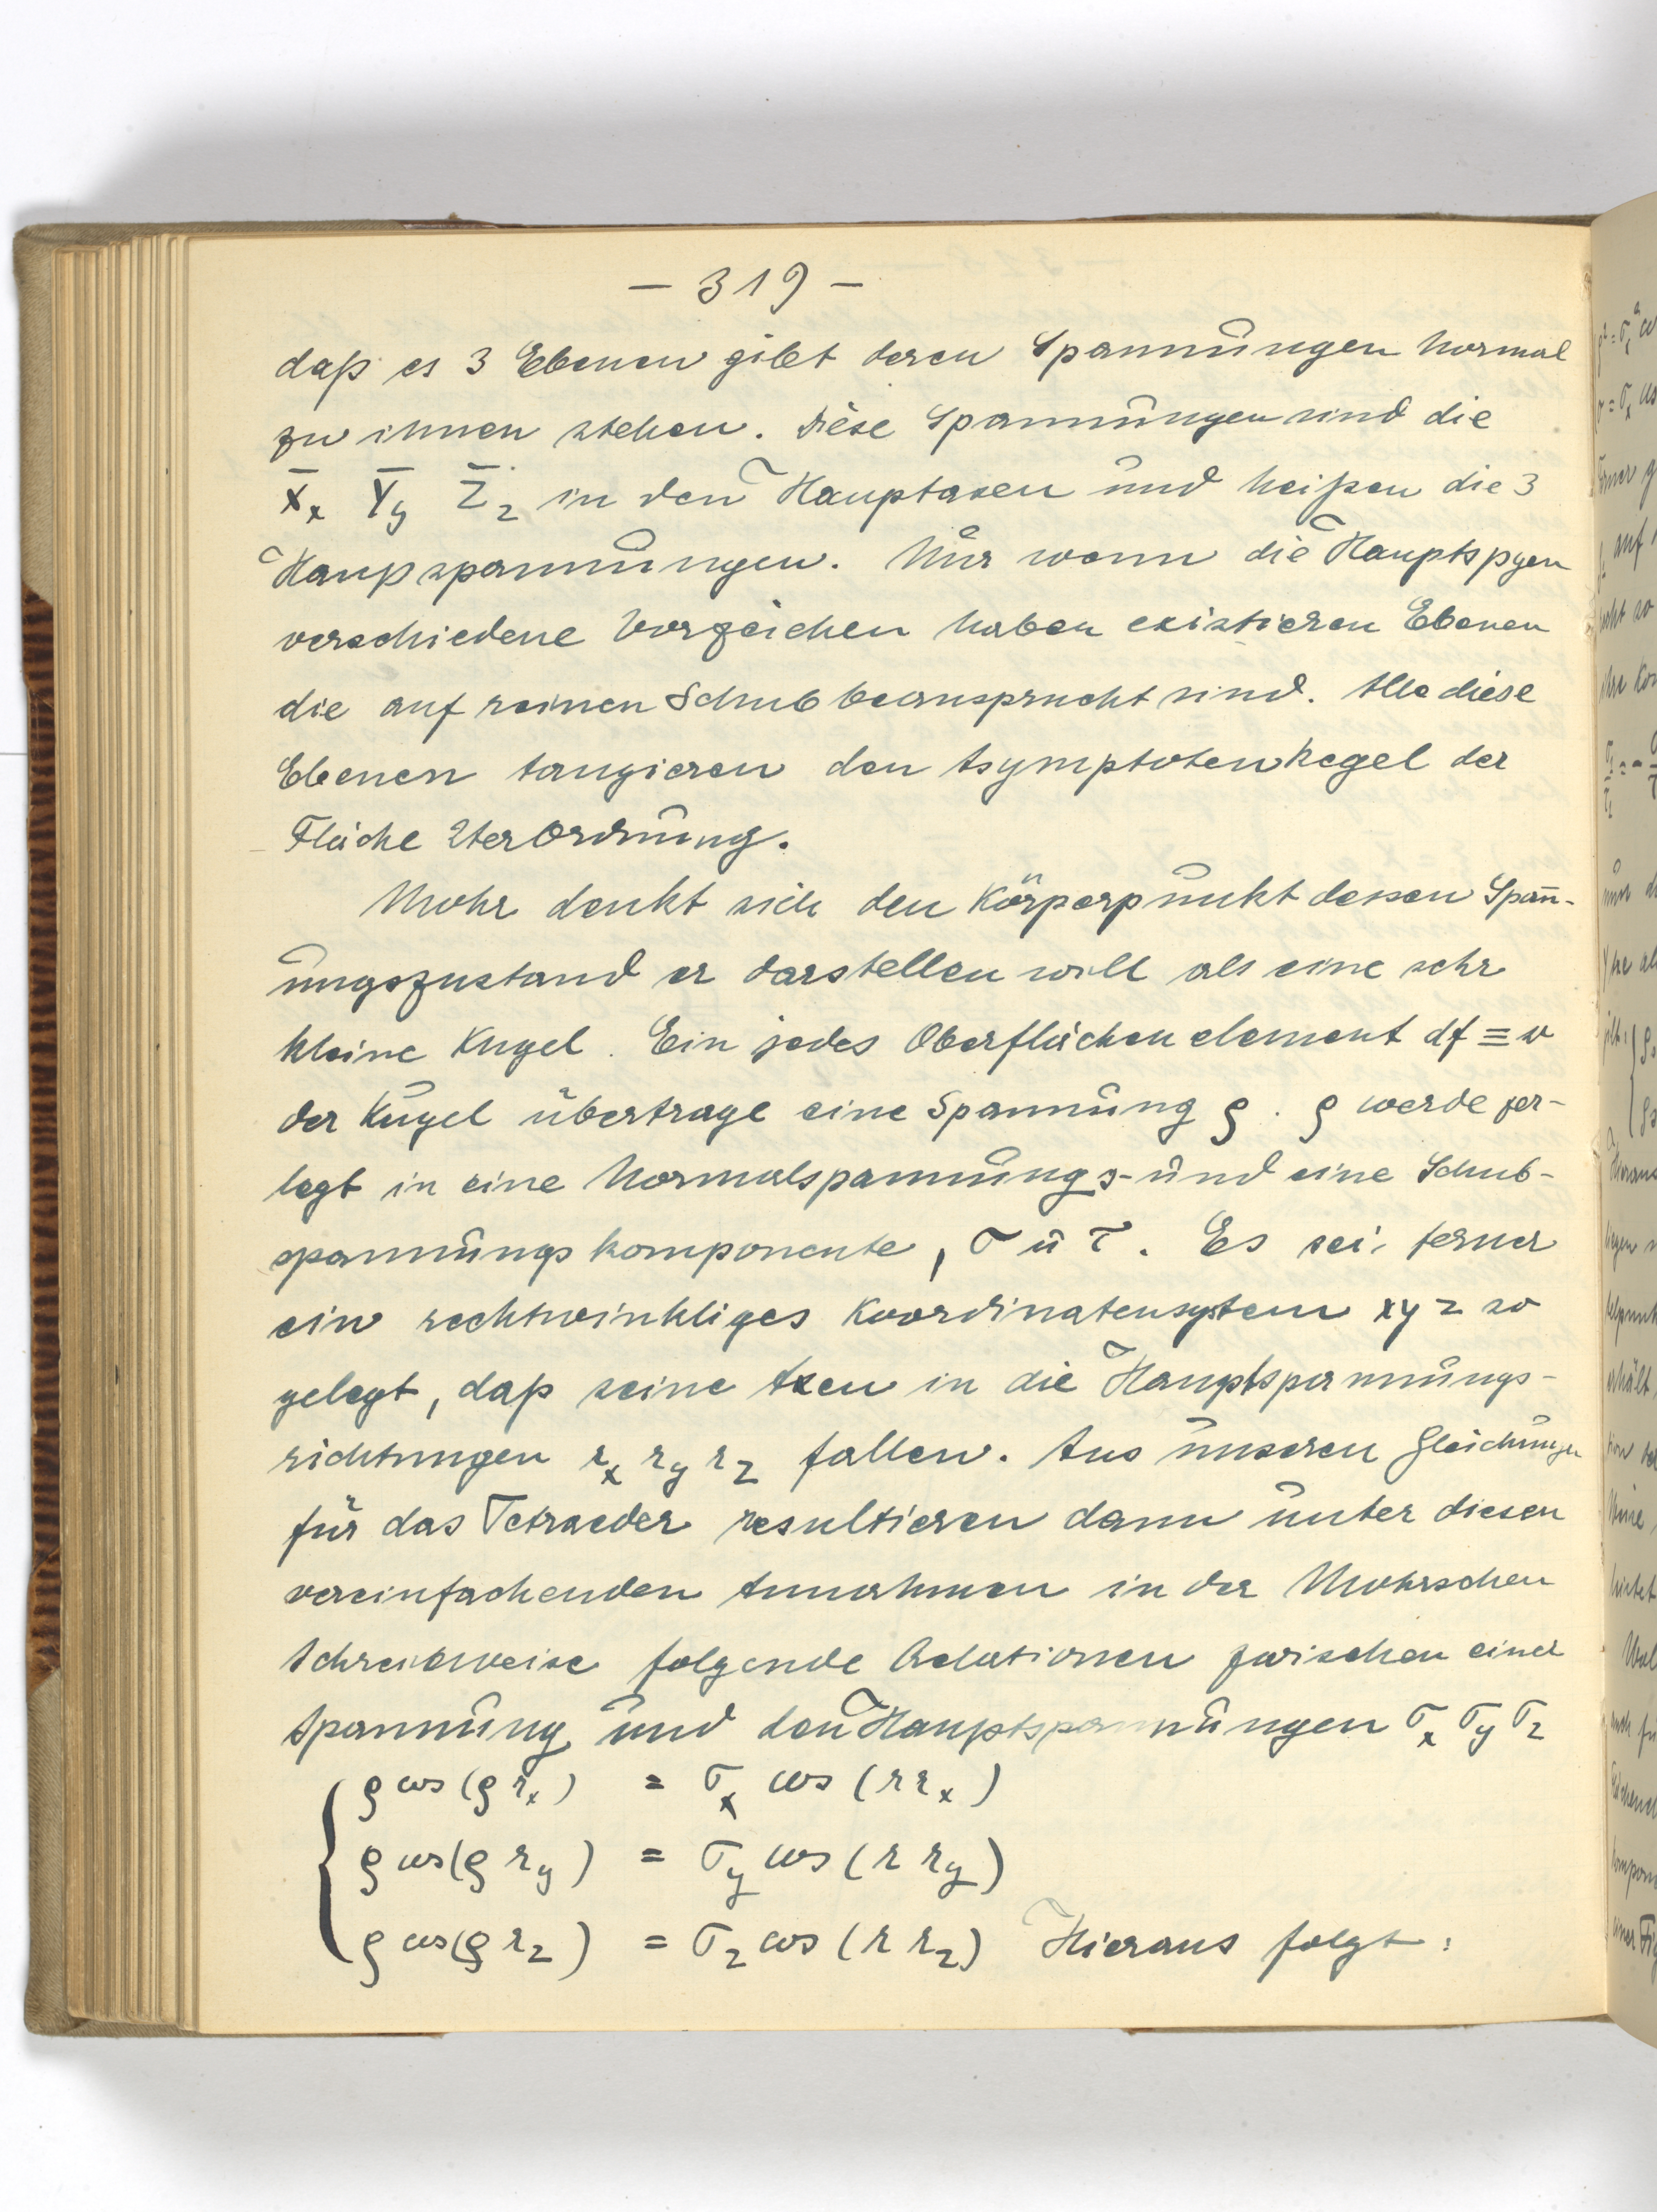 – 319 –
daß es 3 Ebenen gibt deren Spannungen normal
zu ihnen stehen. Diese Spannungen sind die
X̄x Ȳy Z̄z in den Hauptaxen und heißen die 3
Haupspannungen. Nur wenn die Hauptspgen
verschiedene Vorzeichen haben existieren Ebenen
die auf reinen Schub beansprucht sind. Alle diese
Ebenen tangieren den Asymptotenkegel der
Fläche 2ter Ordnung.
Mohr denkt sich den Körperpunkt dessen Spañ-
ungszustand er darstellen will als eine sehr
kleine Kugel. Ein jedes Oberflächenelement df ≡ r
der Kugel übertrage eine Spannung ρ. ρ werde zer-
legt in eine Normalspannungs- und eine Schub-
spannungskomponente, σ u τ. Es sei ferner
ein rechtwinkliges Koordinatensystem xyz so
gelegt, daß seine Axen in die Hauptspannungs-
richtungen rx ry rz fallen. Aus unseren Gleichungen
für das Tetraeder resultieren dann unter diesen
vereinfachenden Annahmen in der Mohrschen
Schreibweise folgende Relationen zwischen einer
Spannung und den Hauptspannungen σx σy σz
ρ cos (ρ rx) = σx cos (r rx)
ρ cos (ρ ry) = σy cos (r ry)
ρ cos (ρ rz) = σz cos (r rz) Hieraus folgt: